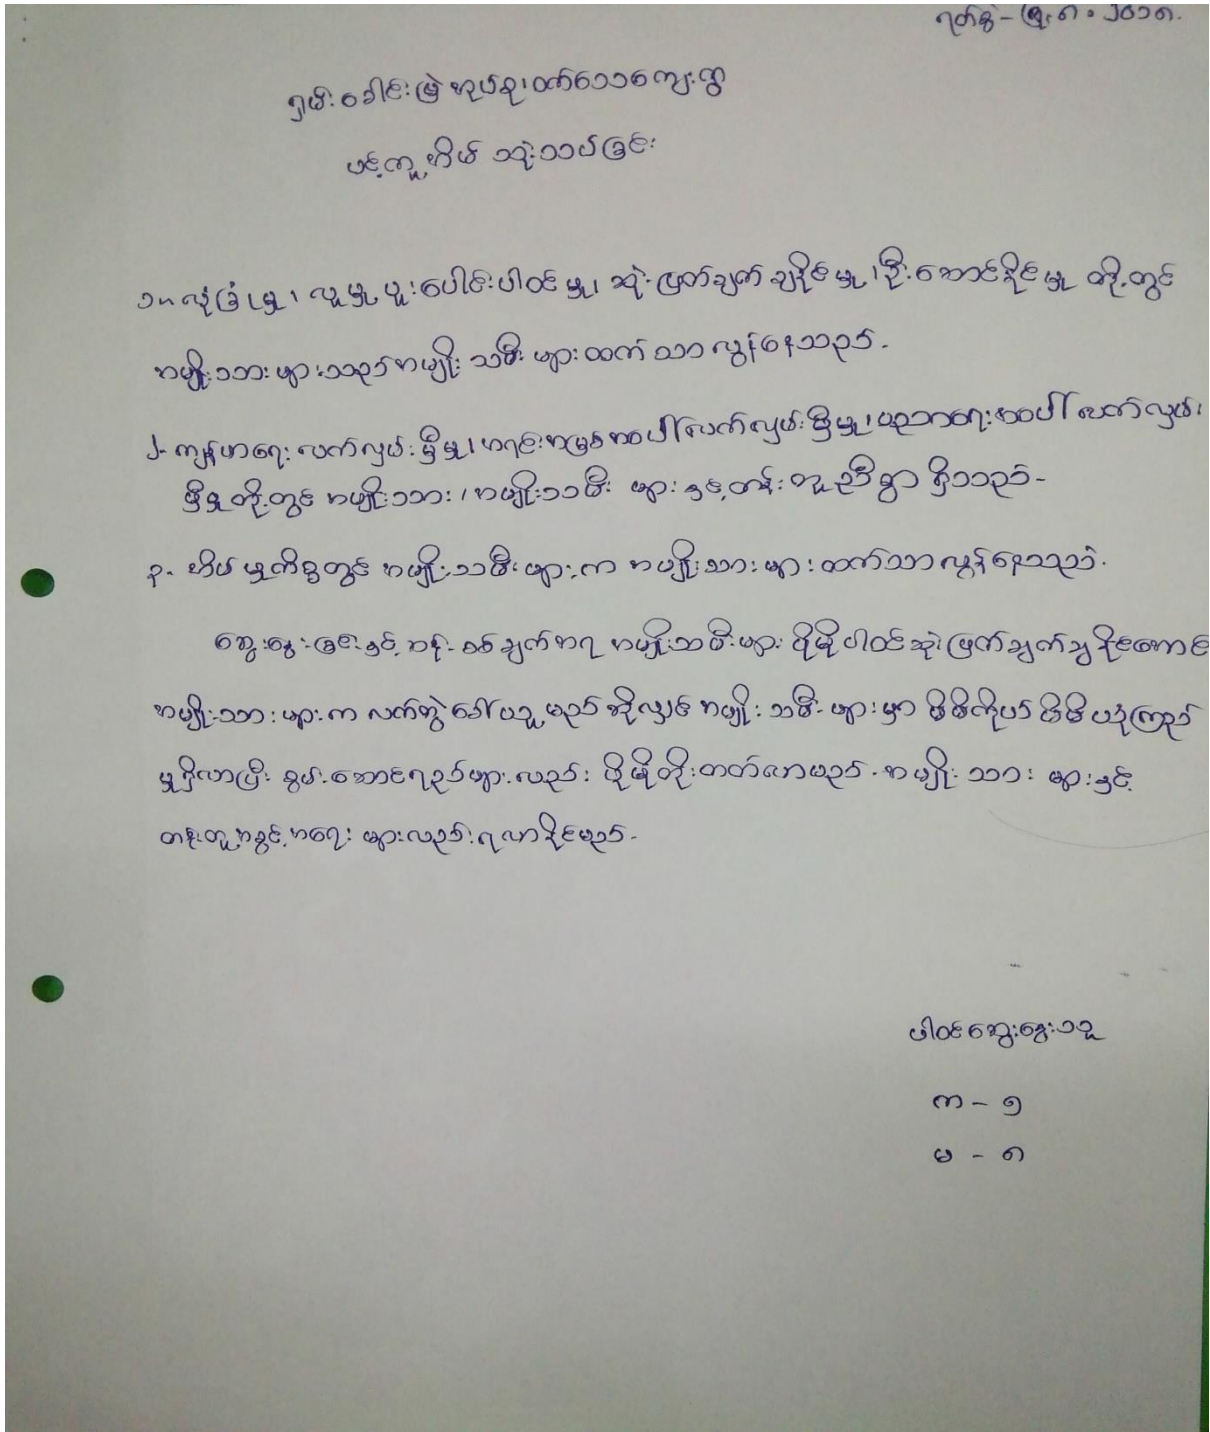 ရက်စွဲ - ၅.၈.၂၀၁၈.
ရှမ်းခေါင်းမြဲအုပ်စု၊ ကျေးရွာ
ပင့်ကူအိမ် သုံးသပ်ခြင်း
၁။ လုံခြုံမှု၊ လူမှု ပူးပေါင်းပါဝင်မှု၊ ဆုံးဖြတ်ချက် ချနိုင်မှု၊ ဦးဆောင်နိုင်မှု တို့တွင်
အမျိုးသားများသည် အမျိုး သမီး များထက် သာလွန်နေသည်.
၂- ကျန်းမာရေး လက်လှမ်းမှီမှု၊ အရင်းအမြစ်အပေါ် လက်လှမ်းမှီမှု၊ ပညာရေးအပေါ် လက်လှမ်း
မှီမှုတို့တွင် အမျိုးသား၊ အမျိုးသမီး များ နှင့်တန်း တူညီစွာ ရှိသည်-
၃- အိမ်မှုကိစ္စတွင် အမျိုးသမီးများက အမျိုးသားများထက်သာလွန်နေသည်.
ဆွေးနွေးခြင်းနှင့် ဆန်းစစ်ချက်အရ အမျိုးသမီးများ ပိုမိုပါဝင်ဆုံးဖြတ်ချက်ချနိုင်အောင်
အမျိုးသားများက လက်တွဲခေါ်ယူမည်ဆိုလျှင် အမျိုးသမီးများမှာ မိမိကိုယ်မိမိယုံကြည်
မှုရှိလာပြီး စွမ်းဆောင်ရည်များလည်း ပိုမိုတိုးတက်လာမည်. အမျိုးသားများနှင့်
တန်းတူအခွင့်အရေး များလည်းရလာနိုင်မည်-
ပါဝင်ဆွေးနွေးသူ
က - ၅
မ - ၈